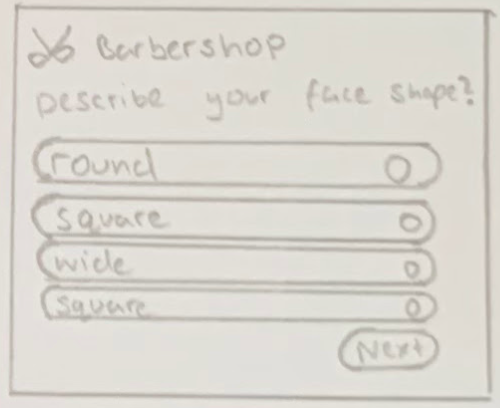 Barbershop
Describe your face shape?
round
square
wide
square
Next